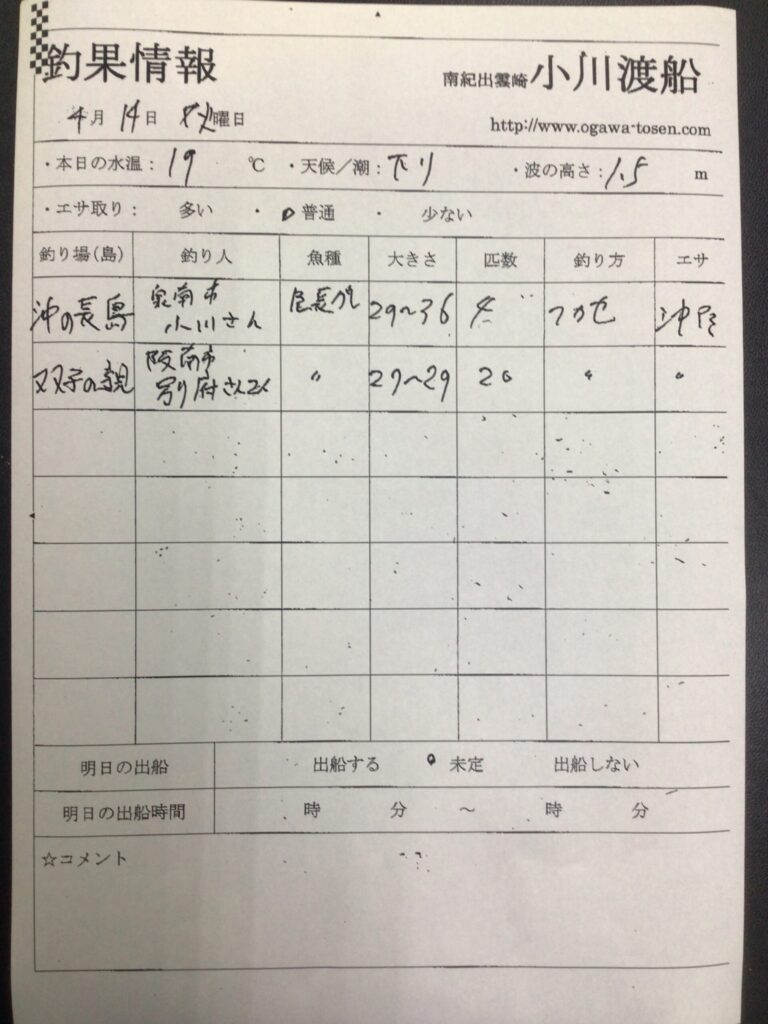 釣果情報
南紀出雲崎 小川渡船
4月 14日 火曜日
http://www.ogawa-tosen.com
・本日の水温: 19 ℃ ・天候/潮: 下り ・波の高さ: 1.5 m
・エサ取り: 多い ・ 普通 ・ 少ない
釣り場(島) 釣り人 魚種 大きさ 匹数 釣り方 エサ
沖の長島 泉南市 小川さん 尾長グレ 29〜36 4 フカセ
双子の親 阪南市 さん2人 〃 27〜29 20 〃 〃
明日の出船 出船する 未定 出船しない
明日の出船時間 時 分 〜 時 分
☆コメント